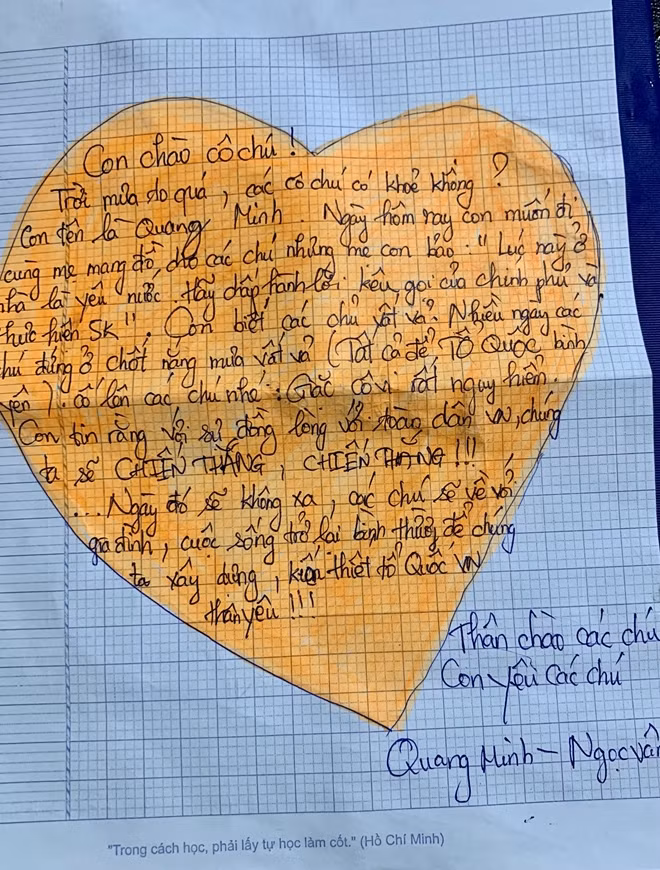 Con chào cô chú !
Trời mưa to quá, các cô chú có khoẻ không ?
Con tên là Quang Minh. Ngày hôm nay con muốn đi
cùng mẹ mang đồ cho các chú nhưng mẹ con bảo: "Lúc này ở
nhà là yêu nước. Hãy chấp hành lời kêu gọi của chính phủ và
thực hiện 5K". Con biết các chú vất vả. Nhiều ngày các
chú đứng ở chốt nắng mưa vất vả (Tất cả để Tổ Quốc bình
yên). Cố lên các chú nhé. Giặc côvi rất nguy hiểm.
Con tin rằng với sự đồng lòng với toàn dân VN, chúng
ta sẽ CHIẾN THẮNG, CHIẾN THẮNG !!!
... Ngày đó sẽ không xa, các chú sẽ về với
gia đình, cuộc sống trở lại bình thường để chúng
ta xây dựng, kiến thiết tổ Quốc VN
thân yêu !!!
Thân chào các chú
Con yêu các chú
Quang Minh – Ngọc Vân
"Trong cách học, phải lấy tự học làm cốt." (Hồ Chí Minh)